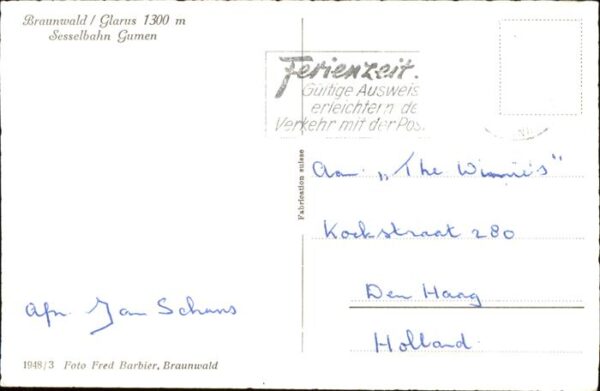 Braunwald / Glarus 1300 m
Sesselbahn Gumen
Ferienzeit.
Gültige Ausweis
erleichtern de
Verkehr mit der Pos.
Fabrication suisse
Aan „The Winnie's"
Kockstraat 280
Den Haag
Holland.
Afz. Jan Schans
1948/3 Foto Fred Barbier, Braunwald